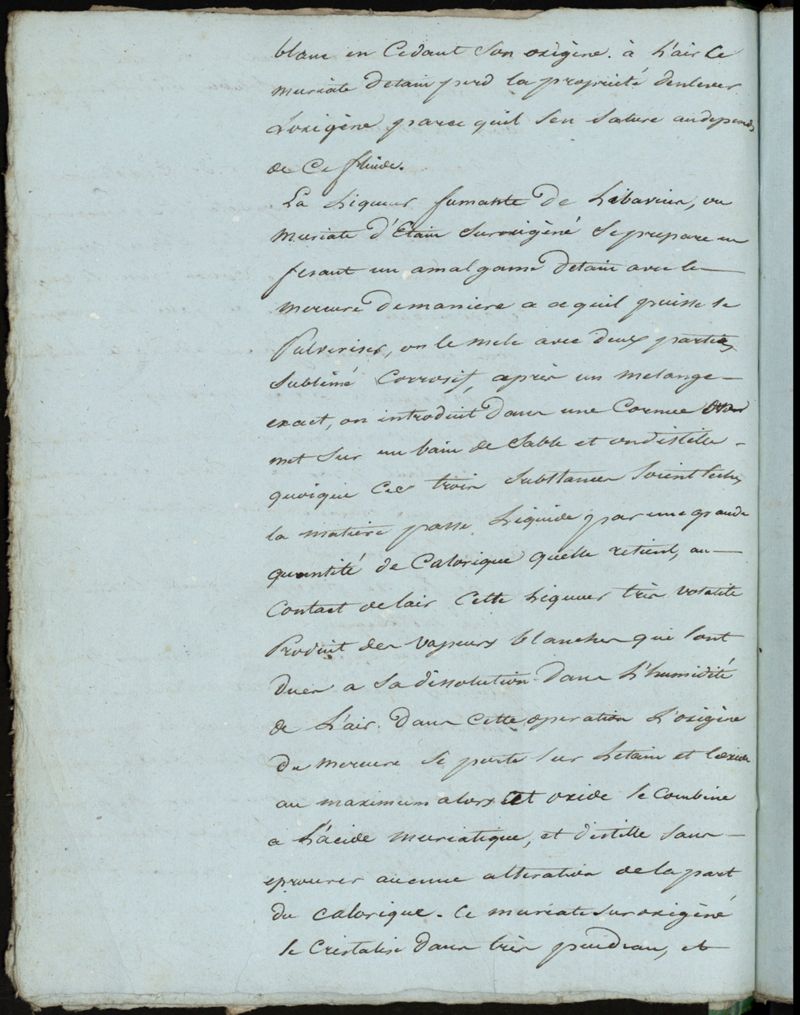 blanc en cedant son oxigène. à l'air le
muriate detain perd la propriété denlever
L'oxigène parce quil sen sature au depends
de ce fluide.
La Liqueur fumante de Libavius, ou
muriate d'Etain suroxigèné se prepare en
fesant un amalgame detain avec le
mercure de maniere a ce quil puisse se
Pulveriser, on le mele avec deux parties
sublimé corrosif, après un melange
exact, on introduit dans une cornue
met sur un bain de sable et on distille
quoique ces trois substances soient seche
la matiere passe Liquide par une grande
quantité de calorique quelle retient, au
contact de lair cette Liqueur très volatile
Produit des vapeurs blanches qui sont
dues a sa dissolution dans L'humidité
de L'air. Dans cette operation L'oxigène
du mercure se porte sur Letain et loxide
au maximum alors cet oxide se combine
a L'acide muriatique, et distille sans
eprouver aucune alteration de la part
du calorique. Ce muriate suroxigèné
se cristalise dans très peu deau, et